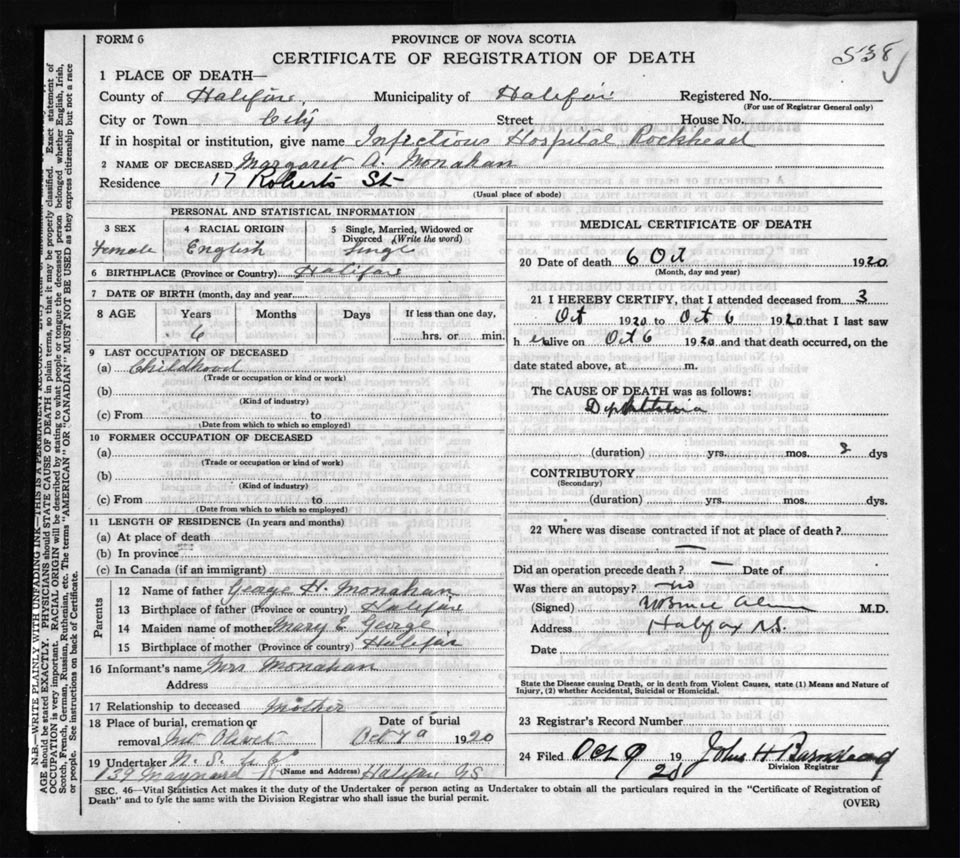 FORM 6
PROVINCE OF NOVA SCOTIA
538
CERTIFICATE OF REGISTRATION OF DEATH
1 PLACE OF DEATH—
County of Halifax Municipality of Halifax Registered No.
(For use of Registrar General only)
City or Town City Street House No.
If in hospital or institution, give name Infectious Hospital Rockhead
2 NAME OF DECEASED Margaret A. Monahan
Residence 17 Roberts St
(Usual place of abode)
PERSONAL AND STATISTICAL INFORMATION
3 SEX 4 RACIAL ORIGIN 5 Single, Married, Widowed or Divorced (Write the word)
Female English Single
6 BIRTHPLACE (Province or Country) Halifax
7 DATE OF BIRTH (month, day and year)
8 AGE Years Months Days If less than one day,
6 hrs. or min.
9 LAST OCCUPATION OF DECEASED
(a) Childhood
(Trade or occupation or kind or work)
(b)
(Kind of industry)
(c) From to
(Date from which to which so employed)
10 FORMER OCCUPATION OF DECEASED
(a)
(Trade or occupation or kind of work)
(b)
(Kind of industry)
(c) From to
(Date from which to which so employed)
11 LENGTH OF RESIDENCE (In years and months)
(a) At place of death
(b) In province
(c) In Canada (if an immigrant)
Parents
12 Name of father George H. Monahan
13 Birthplace of father (Province or country) Halifax
14 Maiden name of mother Mary E. George
15 Birthplace of mother (Province or country) Halifax
16 Informant's name Mrs Monahan
Address
17 Relationship to deceased Mother
18 Place of burial, cremation or Date of burial
removal Mt Olivet Oct 7 1920
19 Undertaker N. S. U. C
139 Maynard (Name and Address) Halifax N.S
MEDICAL CERTIFICATE OF DEATH
20 Date of death 6 Oct 1920
(Month, day and year)
21 I HEREBY CERTIFY, that I attended deceased from 3
Oct 1920 to Oct 6 1920 that I last saw
h er alive on Oct 6 1920 and that death occurred, on the
date stated above, at m.
The CAUSE OF DEATH was as follows:
Diphtheria
(duration) yrs. mos. dys
CONTRIBUTORY
(Secondary)
(duration) yrs. mos. dys.
22 Where was disease contracted if not at place of death?
—
Did an operation precede death? — Date of
Was there an autopsy? no
(Signed) M.D.
Address Halifax N.S.
Date
State the Disease causing Death, or in death from Violent Causes, state (1) Means and Nature of
Injury, (2) whether Accidental, Suicidal or Homicidal.
23 Registrar's Record Number
24 Filed Oct 9 19 20 John H Barnstead
Division Registrar
SEC. 46—Vital Statistics Act makes it the duty of the Undertaker or person acting as Undertaker to obtain all the particulars required in the "Certificate of Registration of
Death" and to fyle the same with the Division Registrar who shall issue the burial permit.
(OVER)
N.B.—WRITE PLAINLY WITH UNFADING INK—THIS IS A PERMANENT RECORD.
AGE should be stated EXACTLY. PHYSICIANS should STATE CAUSE OF DEATH in plain terms, so that it may be properly classified. Exact statement of
OCCUPATION is very important. RACIAL ORIGIN will be described by stating to what people or tongue the deceased person belonged whether English, Irish,
Scotch, French, German, Russian, Ruthenian, etc. The terms "AMERICAN" OR "CANADIAN" MUST NOT BE USED as they express citizenship but not a race
or people. See instructions on back of Certificate.